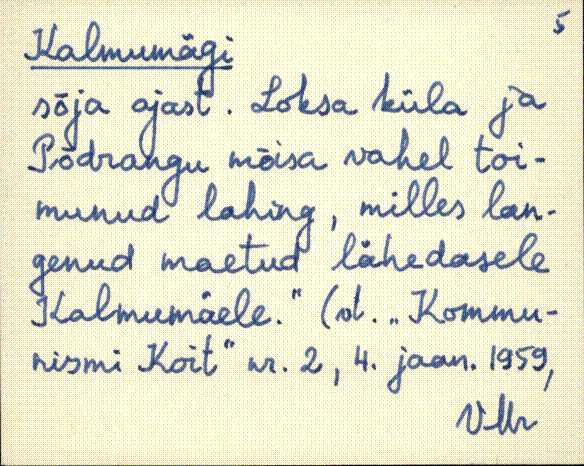 5
Kalmumägi
sõja ajast. Loksa küla ja
Põdrangu mõisa vahel toi-
munud lahing, milles lan-
genud maetud lähedasele
Kalmumäele." (vt. „Kommu-
nismi Koit" nr. 2, 4. jaan. 1959,